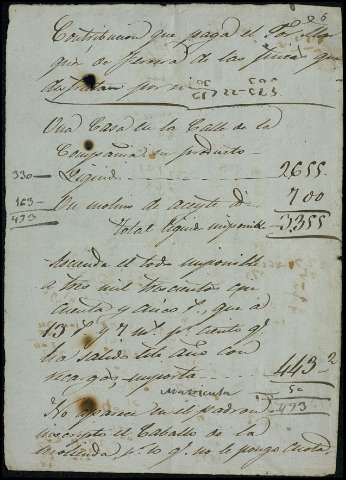 26
Contribucion que paga el Sor Mar
ques de Herrera de las fincas que
disfrutan por ri
Una Casa en la Calle de la
Compañia su producto
330 Liquid 2655
163 Un molino de aceyte id 700
493 total liquid imponible 3355
Asciende el todo imponible
a tres mil trescientos cin
cuenta y cinco r.s, que a
13 r.s y 7 m.s p.r ciento q.e
ha salido este año con
recargos importa 443-2
matricula 50
493
No aparece en el padron
inscripto el Caballo de la
molienda p.r lo q.e no le pongo cuota.